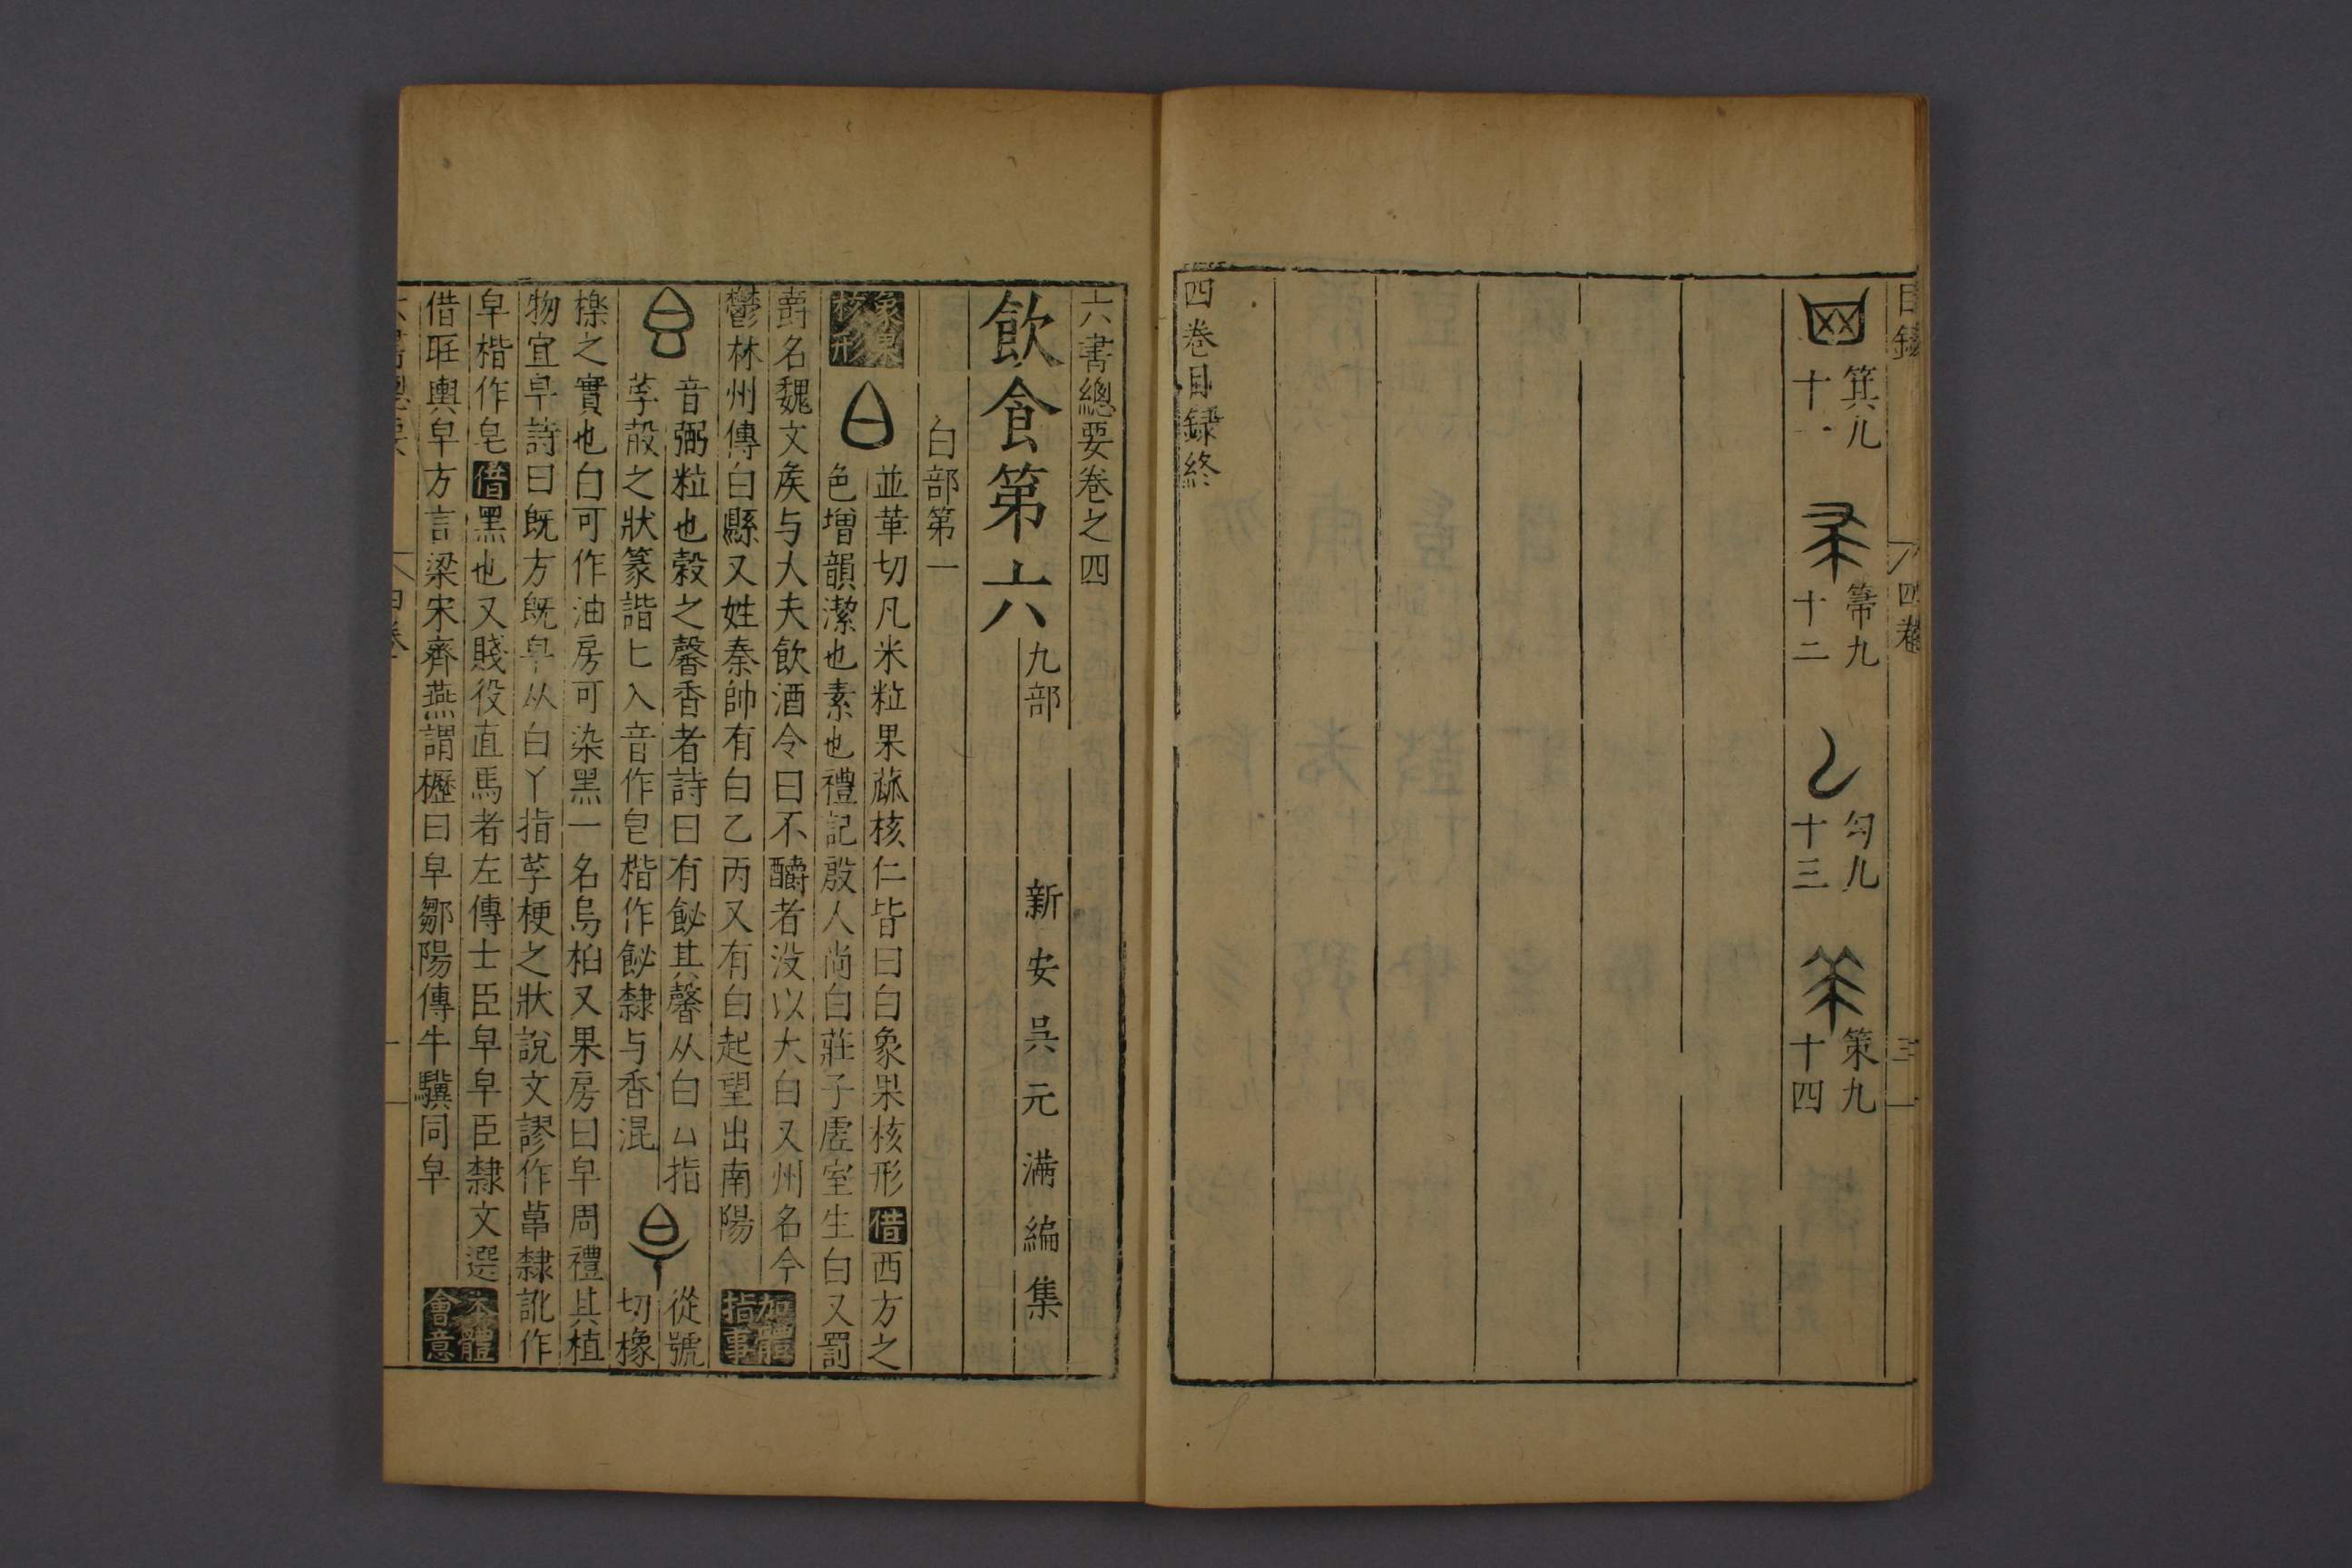 箕九
十一
帚九
十二
勾九
十三
策九
十四
四卷目録終
六書總要卷之四
飲食第六
九部
新安吳元滿編集
白部第一
象果核形
並華切凡米粒果蓏核仁皆曰白象果核形借西方之
色增韻潔也素也禮記殷人尚白莊子虗室生白又罰
爵名魏文矦与大夫飲酒令曰不釂者没以大白又州名今
鬱林州傳白縣又姓秦帥有白乙丙又有白起望出南陽
加體指事
音弼粒也穀之馨香者詩曰有飶其馨从白𠙴指
莩殻之狀篆諧匕入音作皀楷作飶隸与香混
從號
切橡
橡之實也白可作油房可染黑一名烏桕又果房曰皁周禮其植
物宜早詩曰既方既皁从白丫指莩梗之狀說文謬作草隸訛作
皁楷作皂借黑也又賤役直馬者左傳士臣皁皁臣隸文選
借駐輿皁方言梁宋齊燕謂櫪曰皁鄒陽傳牛驥同皁
本體會意